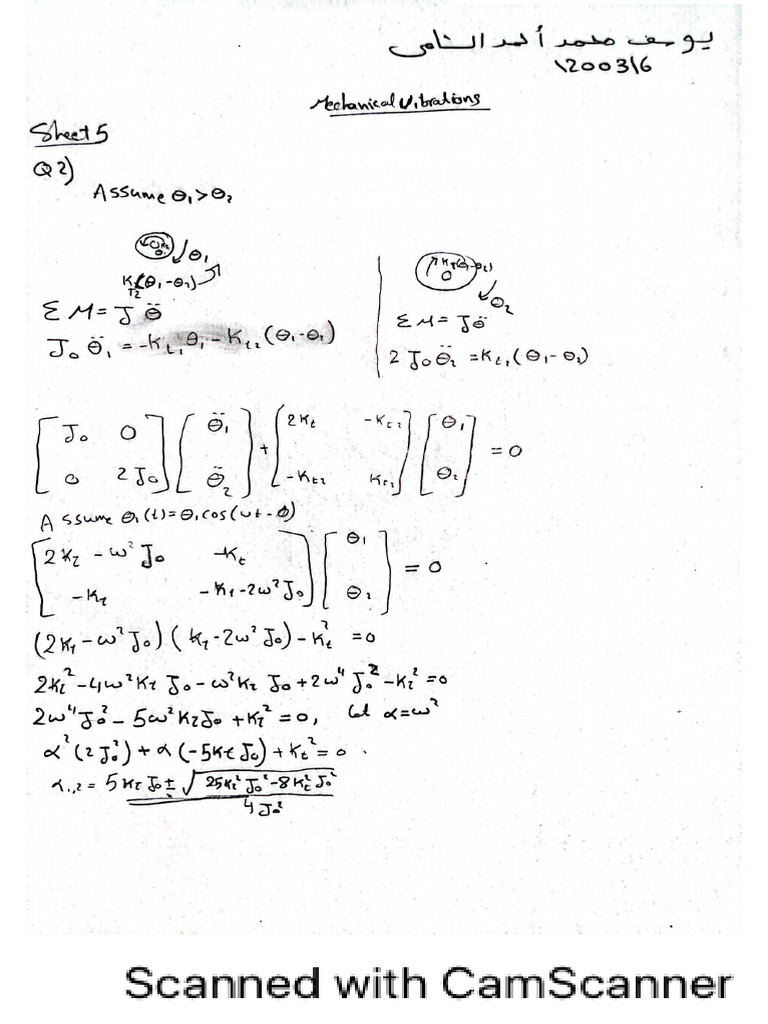 يوسف محمد أحمد الشامى
1200316
Mechanical Vibrations
Sheet 5
Q2)
Assume θ₁>θ₂
θ₁
K_T2(θ₁-θ₂)
Σ M = J θ̈
J₀ θ̈₁ = -K_t₁ θ₁ - K_t₂ (θ₁-θ₂)
K_T(θ₁-θ₂)
θ₂
Σ M = J θ̈
2 J₀ θ̈₂ = K_t₁ (θ₁ - θ₂)
[J₀ 0; 0 2J₀] [θ̈₁; θ̈₂] + [2K_t -K_t₂; -K_t₂ K_t₂] [θ₁; θ₂] = 0
Assume θ₁(t)=θ₁cos(ωt-ϕ)
[2K_t - ω² J₀ -K_t; -K_t -K_t-2ω²J₀] [θ₁; θ₂] = 0
(2K_t-ω²J₀)(K_t-2ω²J₀)-K_t² = 0
2K_t²-4ω²K_t J₀-ω²K_t J₀+2ω⁴J₀²-K_t²=0
2ω⁴J₀²-5ω²K_tJ₀+K_t²=0, let α=ω²
α²(2J₀²)+α(-5K_tJ₀)+K_t²=0.
α₁,₂ = 5K_t J₀ ± √(25K_t²J₀²-8K_t²J₀²)
4J₀²
Scanned with CamScanner